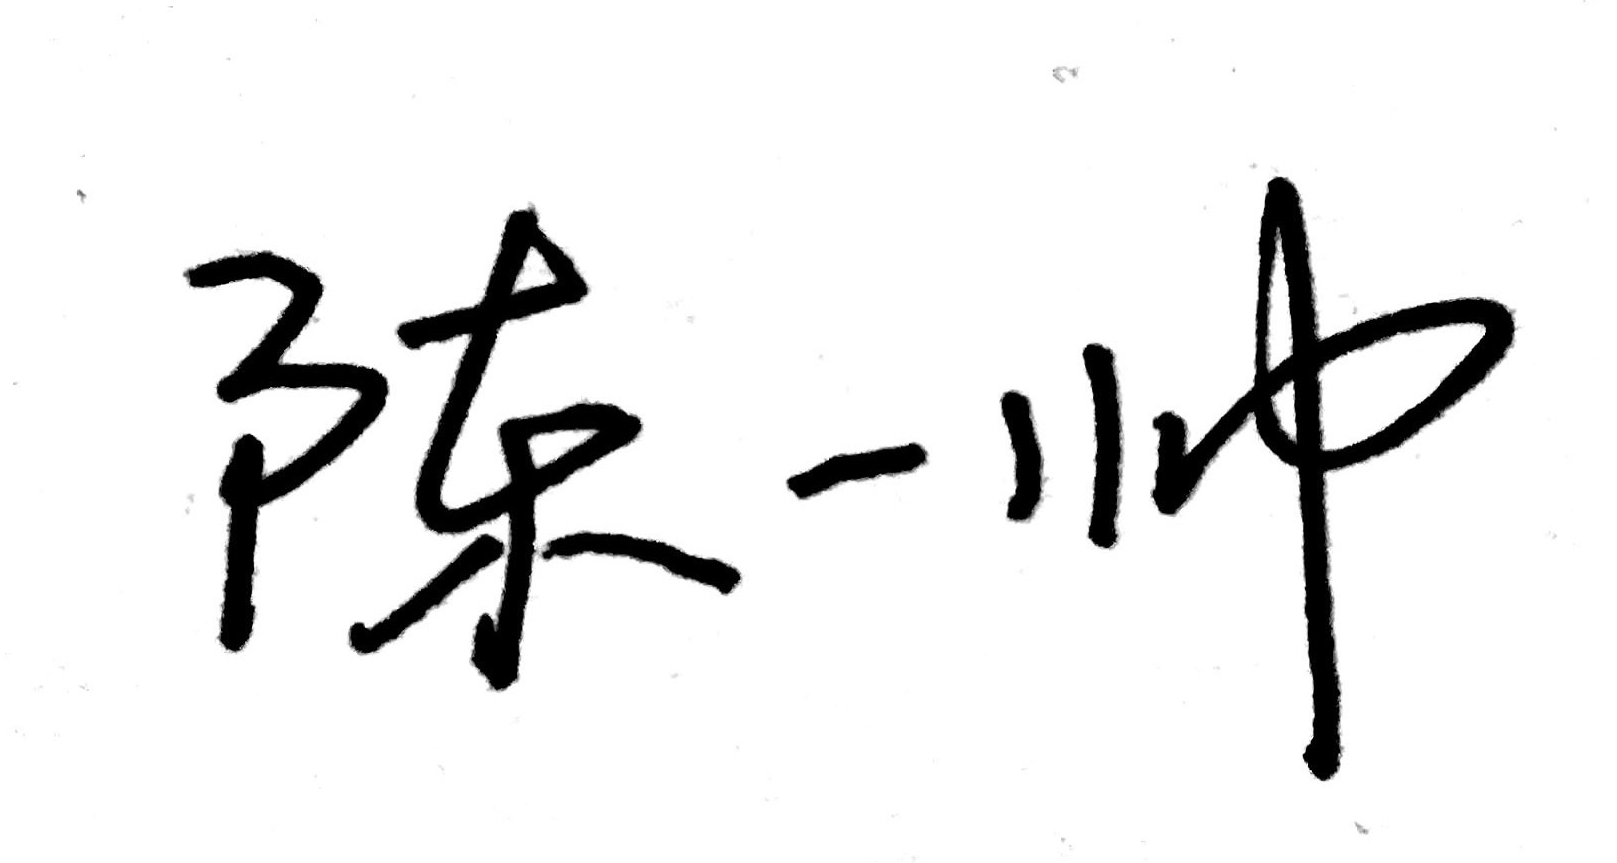 陈一帅